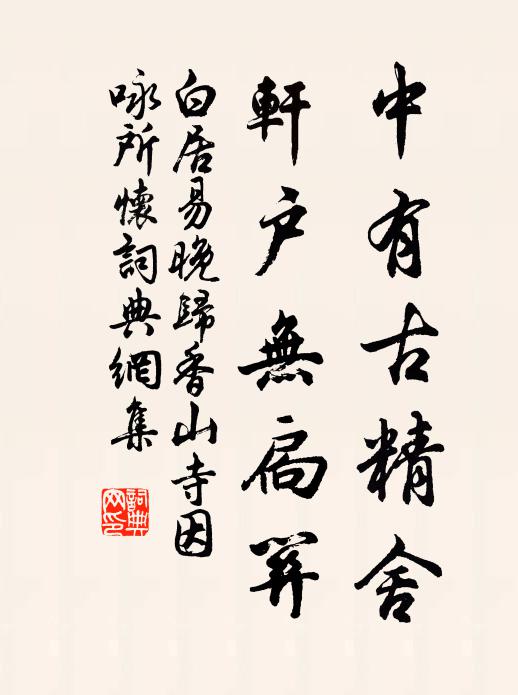 中有古精舍
軒户無扃關
白居易晚歸香山寺因
咏所懷詞典網集
詞典网印